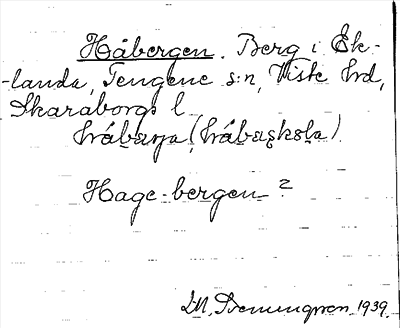 Håbergen. Berg i Ek-
-landa, Tengene s:n, Viste hrd,
Skaraborgs l.
hrábærja (hrábaskola)
Hage-bergen?
I.M. 1939.